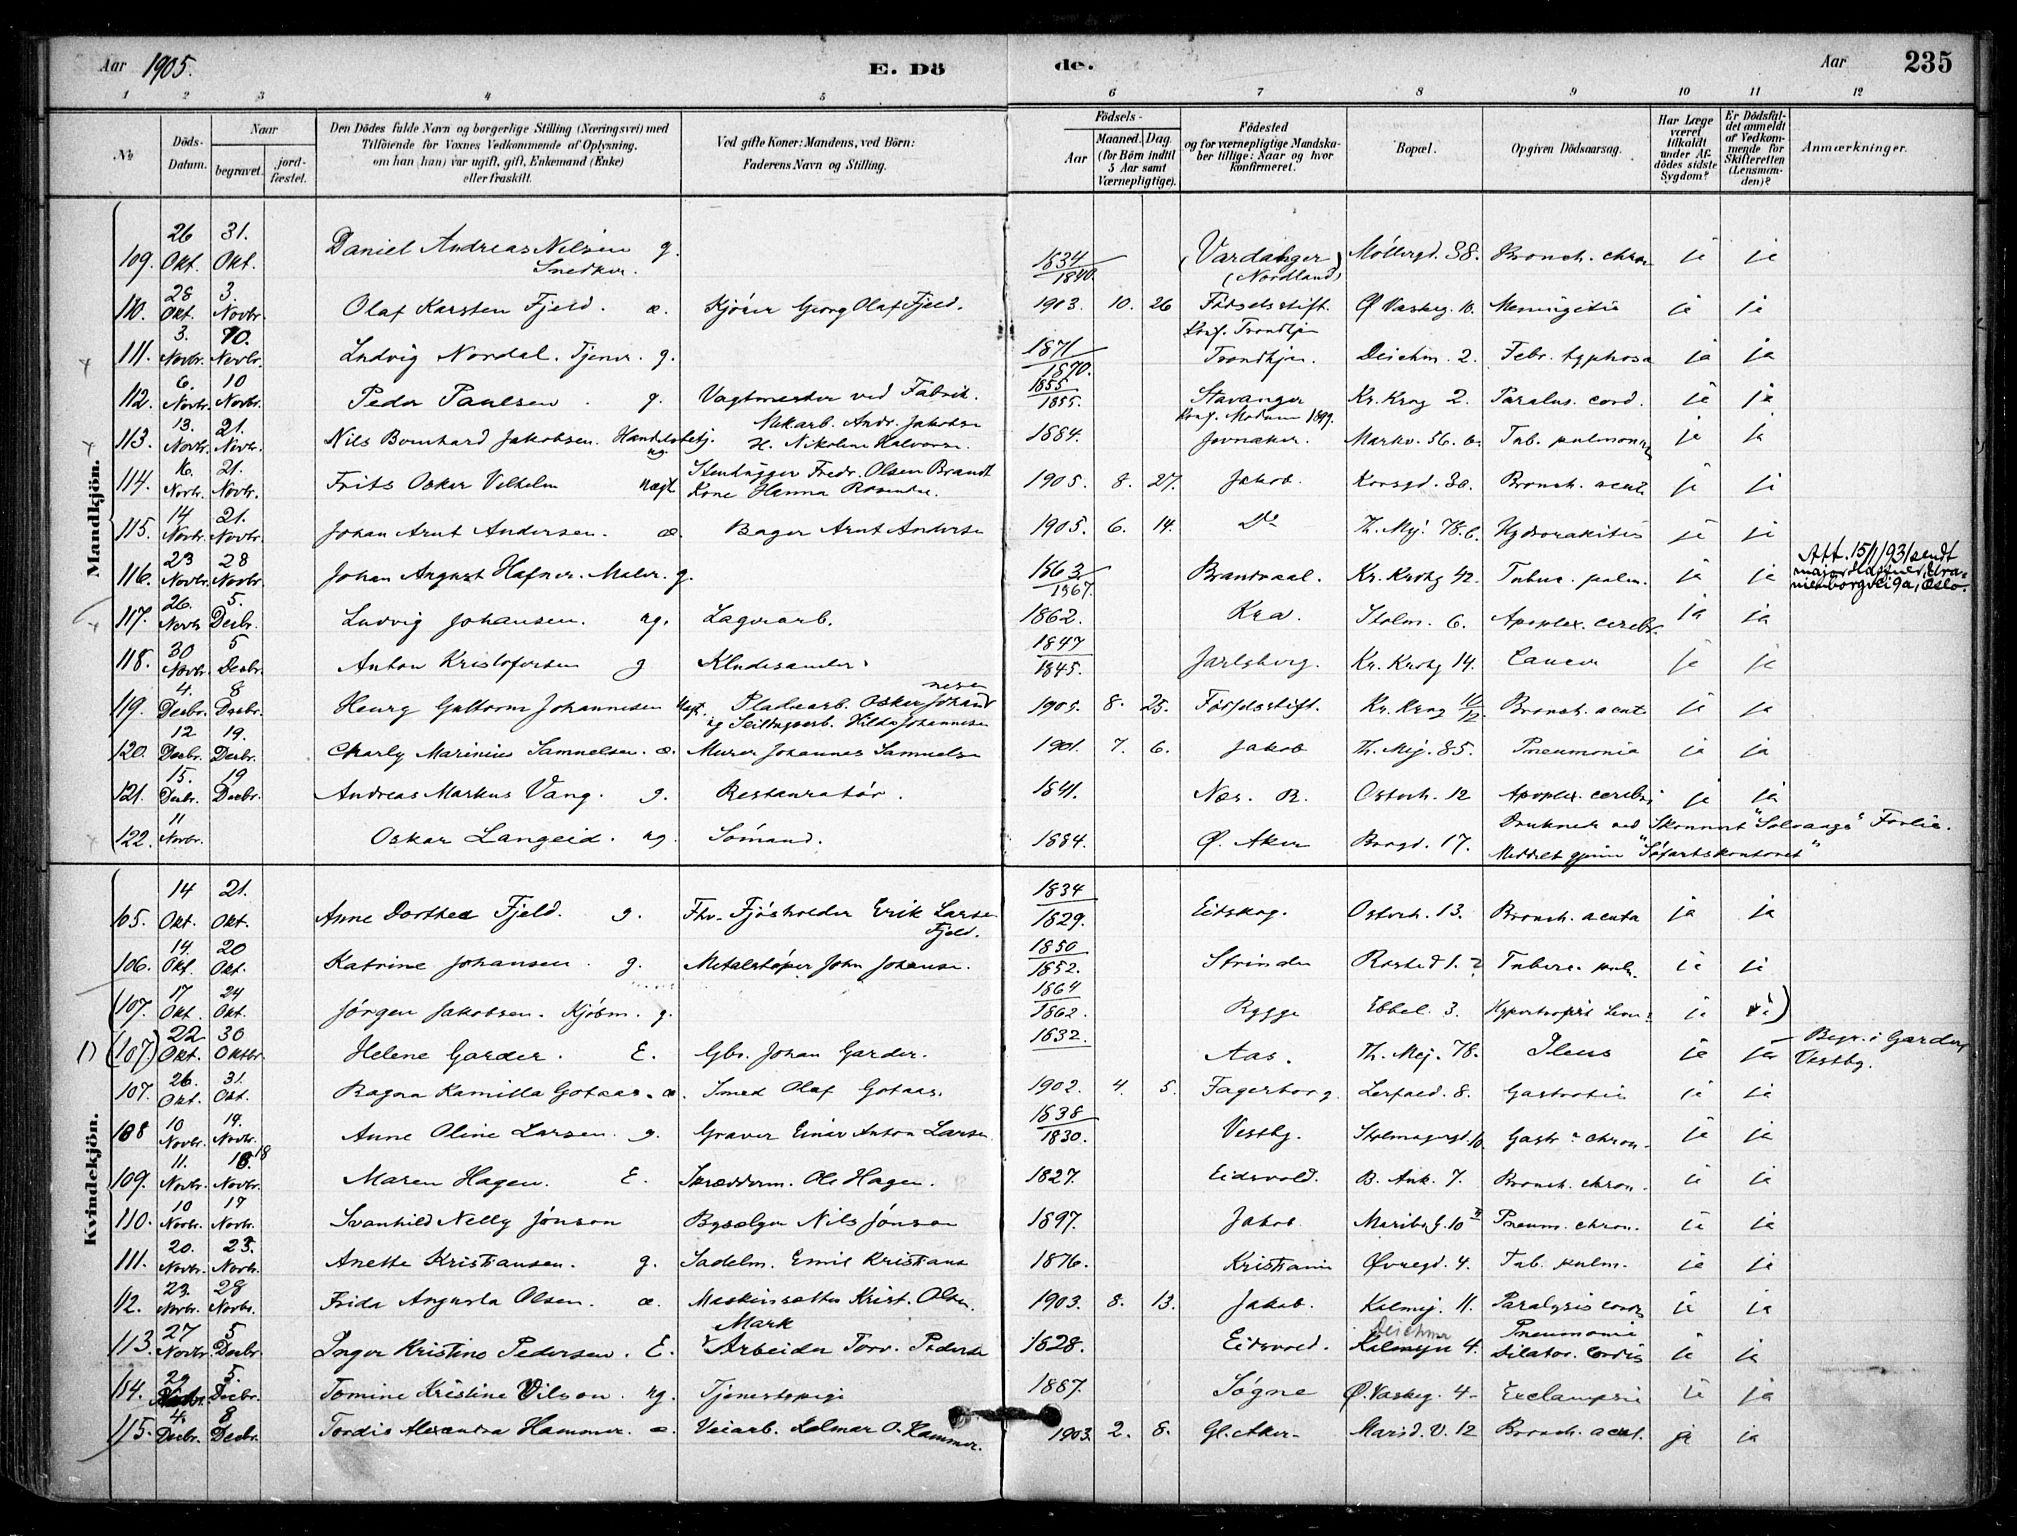 Aar 1905. E. Dö de. Aar 235
1 2 3 4 5 6 7 8 9 10 11 12
№
Döds-Datum.
Naar
begravet.
jord-fæstet.
Den Dödes fulde Navn og borgerlige Stilling (Næringsvei) med
Tilföiende for Voxnes Vedkommende af Oplysning,
om han (hun) var ugift, gift, Enkemand (Enke)
eller fraskilt.
Ved gifte Koner: Mandens, ved Börn:
Faderens Navn og Stilling.
Födsels-
Aar
Maaned. Dag.
(for Börn indtil
5 Aar samt
Værnepligtige).
Födested
og for værnepligtige Mandska-
ber tillige: Naar og hvor
konfirmeret.
Bopæl.
Opgiven Dödsaarsag.
Har Læge
været
tilkaldt
under Af-
dödes sidste
Sygdom?
Er Dödsfal-
det anmeldt
af Vedkom-
mende for
Skifteretten
(Lensman-
den)?
Anmærkninger.
Mandkjön.
109. 26 Okt. 31. Okt. Daniel Andreas Nilsen g. Snedker. 1834/1840. (Nordland) Møllergd. 38. Bronch. chron ja ja
110. 28 Okt. 3. Novbr. Olaf Karsten Fjeld. æ. Kjører Georg Olaf Fjeld. 1903. 10. 26 Fødselsstift. Ø Vaskeg. 10. Meningitis ja ja
111. 3. Novbr. 10. Novbr. Ludvig Nordal. Tjener. g. 1871/1870. Konf. Trondhjem Trondhjem. Deichm. 2. Febr. typhosa ja ja
112. 6. Novbr. 10 Novbr. Peder Paulsen. g. Vagtmester ved Fabrik. 1855/1855. Stavanger Kr. Krog 2. Paralys. cord. ja ja
113. 13. Novbr. 21. Novbr. Nils Bernhard Jakobsen. Handelsbetj. ug. Mekarb. Andr. Jakobse H. Nikoline Halvorse. 1884. Konf. Modum 1899. Jevnaker. Markv. 56. Tub. pulmonum ja ja
114. 16. Novbr. 21. Novbr. Frits Oskar Vilhelm uægt Stenhugger Fredr. Olsen Brandt Kone Hanna 1905. 8. 27. Jakob. Korsgd. 30. Bronch. acut. ja ja
115. 14 Novbr. 21. Novbr. Johan Arnt Andersen. æ. Bager Arnt Anderse 1905. 6. 14. Do Th. Mej. 78. Hydrorakitis ja ja
116. 23 Novbr. 28 Novbr. Johan August Hafner. Maler. g. 1863/1867. Brandvaal. Kr. Krohg 42. Tuber. pulm. ja ja Att. 15/1/93/sendt
117. 26. Novbr 5. Desbr. Ludvig Johansen. ug. Lagerarb. 1862. Kra. Stolm. 6. Apoplex. cerebr. ja ja
118. 30 Novbr. 5 Desbr. Anton Kristofersen g Kludesamler. 1847/1845. Jarlsberg. Kr. Krohg 14. Cancer ja ja
119. 4. Desbr. 8 Desbr. Henry Guttorm Johannesen Uægt. Pladearb. Oskar Johannesen og Hilda Johannesen 1905. 8. 25. Fødselsstift. Kr. Krog 10/12. Bronch. acut ja ja
120. 12 Desbr. 19. Desbr. Charly Marinius Samuelsen. æ. Murer Johannes Samuelse 1901. 7. 6. Jakob Th. Mej. 85. Pneumonia ja ja
121. 15. Desbr. 19 Desbr. Andreas Markus Vang. g. Restauratør. 1841. Næs. R. Osterh. 12 Apoplex. cerebri ja ja
122. 11 Novbr. Oskar Langeid. ug. Sømand. 1884. Ø. Aker Borgd. 17. Druknet ved Skonnert "Solvangs" Forlis. Meddelt gjennem "Søfartskontoret"
Kvindekjön.
105. 14 Okt. 21. Okt. Anne Dorthea Fjeld. g. Fhv. Fjøsholder Erik Larse Fjeld. 1834/1829. Eidskog. Osterh. 13. Bronch. acuta ja ja
106. 14. Okt. 20 Okt. Katrine Johansen. g. Metalstøper John Johanse. 1850/1852. Strinden Rosted 1. Tuberc. pulm. ja ja
(107. 17 Okt. 24 Okt. Jørgen Jakobsen. Kjøbm. g. 1864/1862. Rygge Ebbel. 3. ja ja)
1) (107.) 22 Okt. 30 Oktbr. Helene Garder. E. Gbr. Johan Garder. 1832. Aas. Th. Mej. 78. Ileus ja ja Begr. i Garder, Vestby.
107. 26. Okt. 31. Okt. Ragna Kamilla Gotaas. æ. Smed Olaf Gotaas. 1902. 4. 5. Fagerborg. Lerfald. 8. Gastrotis ja ja
108 10 Novbr. 14. Novbr. Anne Oline Larsen. g. Graver Einar Anton Larse 1838/1830. Vestby. Stolmagergd. 10. Gastr. chron. ja ja
109. 11. Novbr. 18 Novbr. Maren Hagen. E. Skrædderm. Ole Hagen. 1827. Eidsvold. B. Ank. 7. Bronch. chron. ja ja
110. 10 Novbr. 17 Novbr. Svanhild Nelly Jønson Bysælger Nils Jønson 1897. Jakob. Maribog. 10 Pneum. chron. ja ja
111. 20. Novbr. 23. Novbr. Anette Kristiansen. g. Sadelm. Emil Kristians 1876. Kristiania Øvregd. 4. Tub. pulm. ja ja
112. 23. Novbr. 28 Novbr. Frida Augusta Olsen. æ. Maskinsætter Krist. Olsen. 1903. 8. 13. Jakob. Kalmej. 11. Paralysis cordis ja ja
113. 27 Novbr. 5 Desbr. Inger Kristine Pedersen. E. Mark Arbeider Torv. Pederse 1828. Eidsvold. Deichmr Kalmeyr 4. Pneumonia Dilator. cordis ja ja
114. 29 5. Desbr. Tomine Kristine Vilson. ug. Tjenestepige 1887. Søgne Ø. Vaskeg. 4 Ecclampsi ja ja
115. 4. Desbr. 8 Desbr. Tordis Alexandra Hammer. æ. Veiarb. Hammer. 1903 2. 8. Gl. Aker. Marid. V. 12 Bronch. acut. ja ja